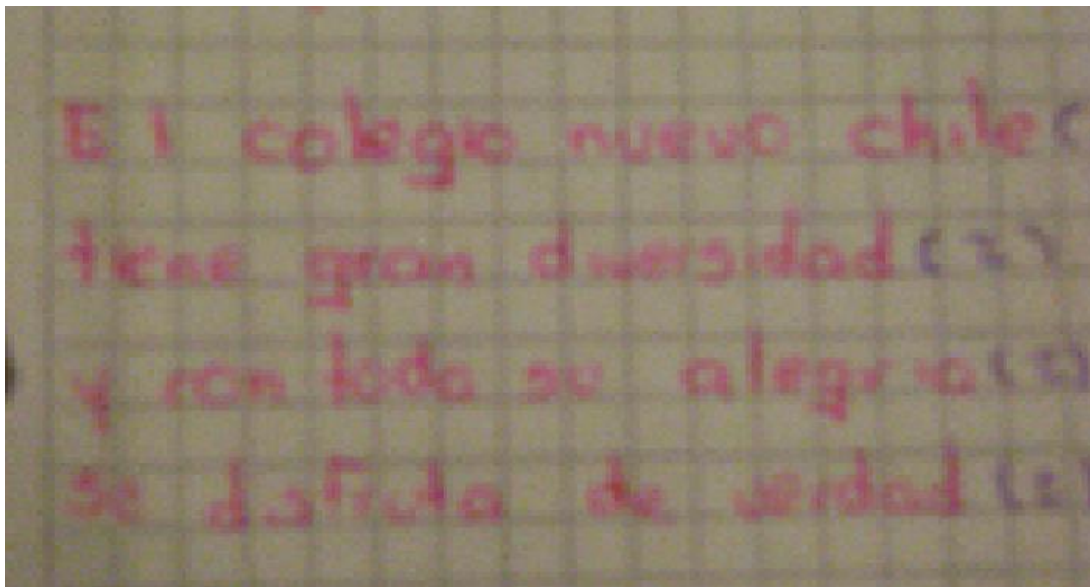 El colegio nuevo chile (
tiene gran diversidad (2)
y con toda su alegria (2)
se disfruta de verdad (2)